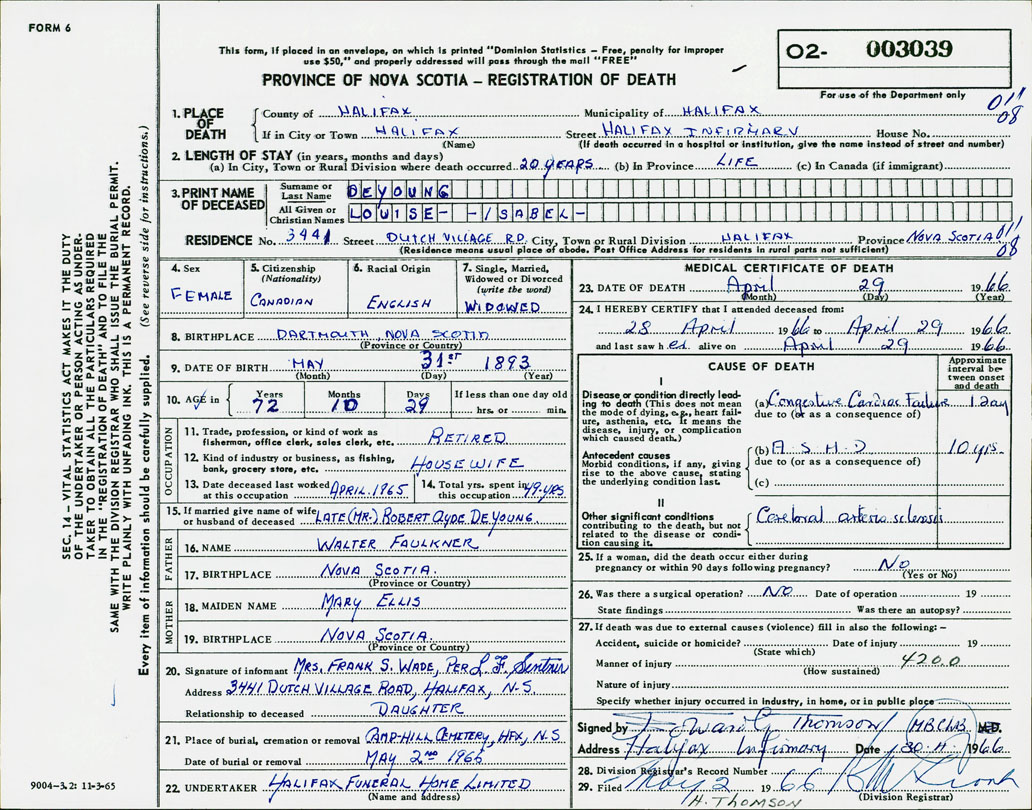 FORM 6
This form, if placed in an envelope, on which is printed "Dominion Statistics – Free, penalty for improper
use $50," and properly addressed will pass through the mail "FREE"
PROVINCE OF NOVA SCOTIA – REGISTRATION OF DEATH
O2- 003039
For use of the Department only
011
08
1. PLACE OF DEATH
County of HALIFAX Municipality of HALIFAX
If in City or Town HALIFAX Street HALIFAX INFIRMARY House No.
(Name) (If death occurred in a hospital or institution, give the name instead of street and number)
2. LENGTH OF STAY (in years, months and days)
(a) In City, Town or Rural Division where death occurred 20 YEARS (b) In Province LIFE (c) In Canada (if immigrant)
3. PRINT NAME OF DECEASED
Surname or Last Name DEYOUNG
All Given or Christian Names LOUISE- -ISABEL-
RESIDENCE No. 3441 Street DUTCH VILLAGE RD. City, Town or Rural Division HALIFAX Province NOVA SCOTIA 011
(Residence means usual place of abode. Post Office Address for residents in rural parts not sufficient) 08
4. Sex
FEMALE
5. Citizenship
(Nationality)
CANADIAN
6. Racial Origin
ENGLISH
7. Single, Married,
Widowed or Divorced
(write the word)
WIDOWED
8. BIRTHPLACE DARTMOUTH, NOVA SCOTIA
(Province or Country)
9. DATE OF BIRTH MAY 31ST 1893
(Month) (Day) (Year)
10. AGE in
Years 72
Months 10
Days 29
If less than one day old
hrs. or min.
OCCUPATION
11. Trade, profession, or kind of work as
fisherman, office clerk, sales clerk, etc. RETIRED
12. Kind of industry or business, as fishing,
bank, grocery store, etc. HOUSEWIFE
13. Date deceased last worked
at this occupation APRIL. 1965
14. Total yrs. spent in
this occupation 49-YRS
15. If married give name of wife
or husband of deceased LATE (MR.) ROBERT CLYDE DEYOUNG.
FATHER
16. NAME WALTER FAULKNER
17. BIRTHPLACE NOVA SCOTIA.
(Province or Country)
MOTHER
18. MAIDEN NAME MARY ELLIS
19. BIRTHPLACE NOVA SCOTIA.
(Province or Country)
20. Signature of informant MRS. FRANK S. WADE, PER L. F.
Address 3441 DUTCH VILLAGE ROAD, HALIFAX, N-S.
Relationship to deceased DAUGHTER
21. Place of burial, cremation or removal CAMP-HILL CEMETERY, HFX, N.S.
Date of burial or removal MAY 2ND 1966
22. UNDERTAKER HALIFAX FUNERAL HOME LIMITED
(Name and address)
MEDICAL CERTIFICATE OF DEATH
23. DATE OF DEATH April 29 1966
(Month) (Day) (Year)
24. I HEREBY CERTIFY that I attended deceased from:
28 April 1966 to April 29 1966
and last saw h er alive on April 29 1966
CAUSE OF DEATH
Approximate
interval be-
tween onset
and death
I
Disease or condition directly lead-
ing to death (This does not mean
the mode of dying, e.g., heart fail-
ure, asthenia, etc. It means the
disease, injury, or complication
which caused death.)
(a) Congestive Cardiac Failure 1 day
due to (or as a consequence of)
Antecedent causes
Morbid conditions, if any, giving
rise to the above cause, stating
the underlying condition last.
(b) A S H D 10 yrs.
due to (or as a consequence of)
(c)
II
Other significant conditions
contributing to the death, but not
related to the disease or condi-
tion causing it.
Cerebral arterio sclerosis
25. If a woman, did the death occur either during
pregnancy or within 90 days following pregnancy? No
(Yes or No)
26. Was there a surgical operation? NO Date of operation 19
State findings Was there an autopsy?
27. If death was due to external causes (violence) fill in also the following: –
Accident, suicide or homicide? Date of injury 19
(State which)
Manner of injury 420.0
(How sustained)
Nature of injury
Specify whether injury occurred in industry, in home, or in public place
Signed by Edward G Thomson M.D.
Address Halifax Infirmary Date 30. 4. 1966
28. Division Registrar's Record Number
29. Filed May 2 1966
(Division Registrar)
H. THOMSON
SEC. 14 – VITAL STATISTICS ACT MAKES IT THE DUTY
OF THE UNDERTAKER OR PERSON ACTING AS UNDER-
TAKER TO OBTAIN ALL THE PARTICULARS REQUIRED
IN THE "REGISTRATION OF DEATH" AND TO FILE THE
SAME WITH THE DIVISION REGISTRAR WHO SHALL ISSUE THE BURIAL PERMIT.
WRITE PLAINLY WITH UNFADING INK. THIS IS A PERMANENT RECORD.
Every item of information should be carefully supplied. (See reverse side for instructions.)
9004–3.2: 11-3-65